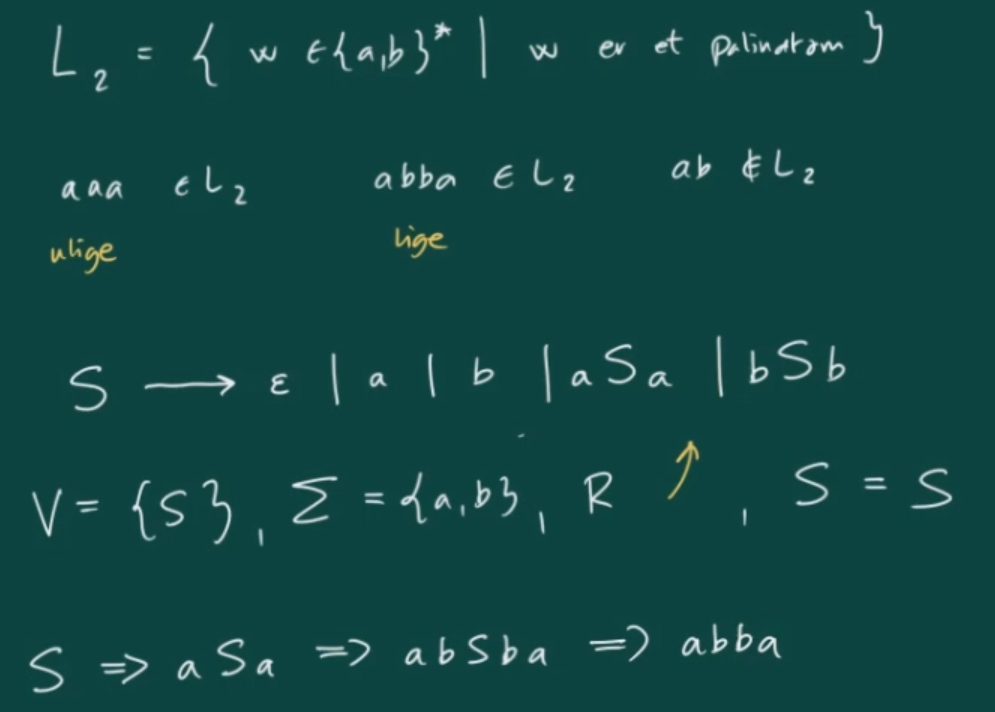 L₂ = { w ∈ {a,b}* | w er et palindrom }
aaa ∈ L₂ abba ∈ L₂ ab ∉ L₂
ulige lige
S → ε | a | b | aSa | bSb
V = {S}, Σ = {a,b}, R ↗, S = S
S ⇒ aSa ⇒ abSba ⇒ abba